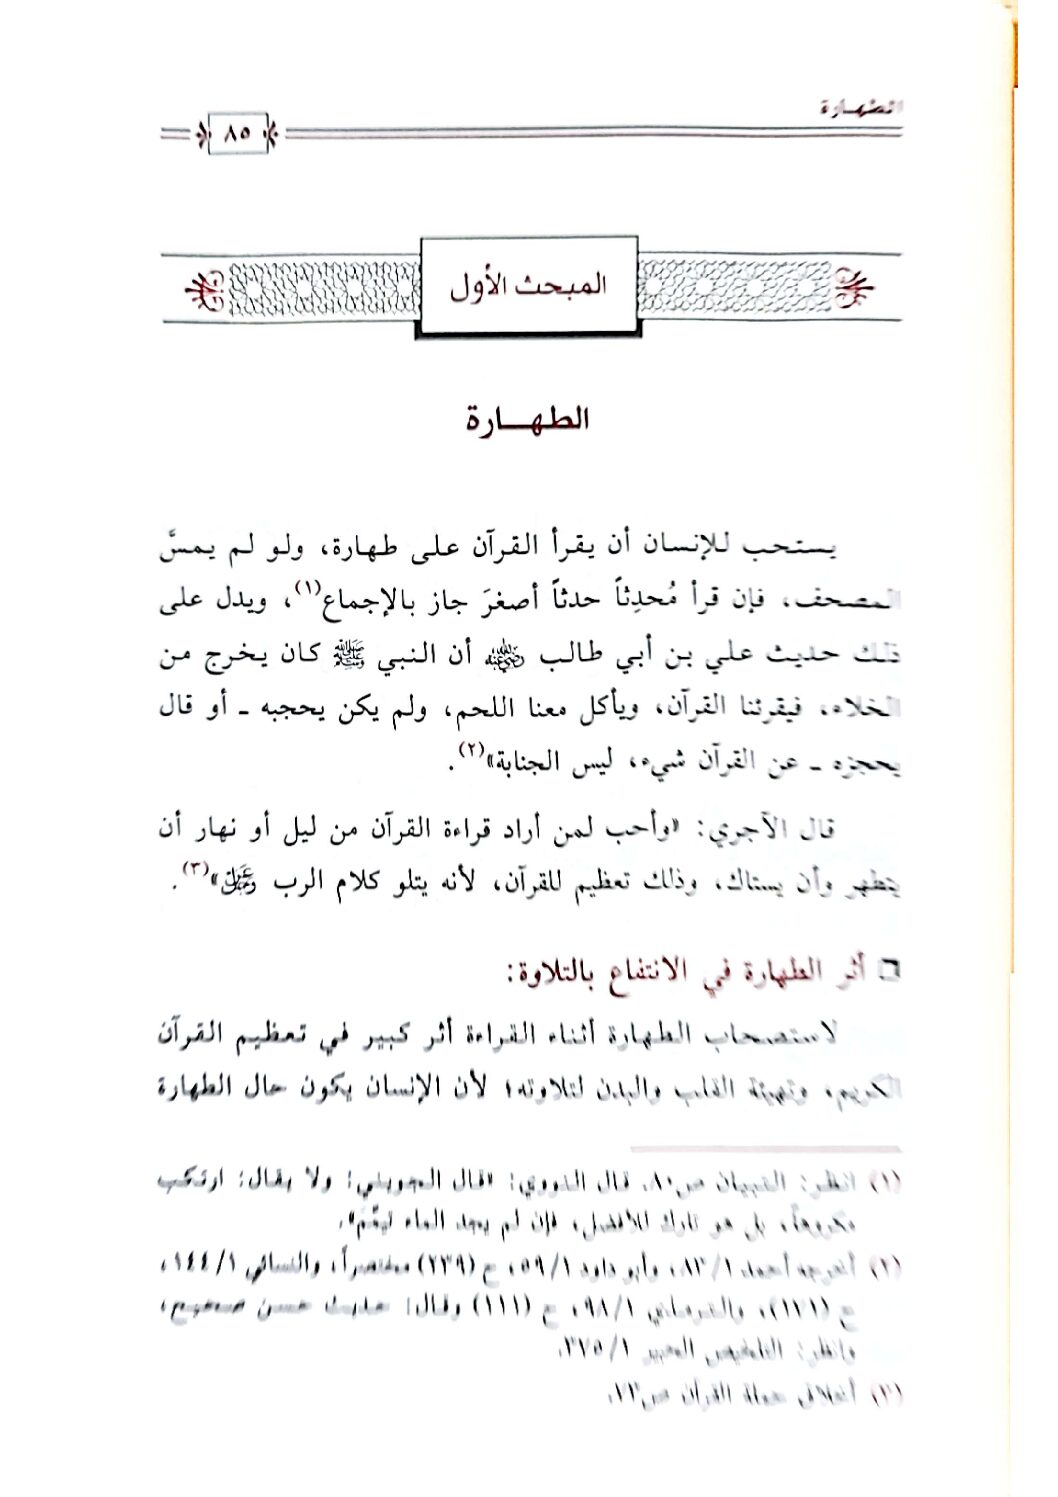 الطهارة
٨٥
المبحث الأول
الطهـــارة
يستحب للإنسان أن يقرأ القرآن على طهارة، ولو لم يمسَّ
المصحف، فإن قرأ مُحدِثاً حدثاً أصغرَ جاز بالإجماع(١)، ويدل على
ذلك حديث علي بن أبي طالب رضي الله عنه أن النبي ﷺ كان يخرج من
الخلاء، فيقرئنا القرآن، ويأكل معنا اللحم، ولم يكن يحجبه ـ أو قال
يحجزه ـ عن القرآن شيء، ليس الجنابة»(٢).
قال الآجري: «وأحب لمن أراد قراءة القرآن من ليل أو نهار أن
يتطهر وأن يستاك، وذلك تعظيم للقرآن، لأنه يتلو كلام الرب عز وجل»(٣).
أثر الطهارة في الانتفاع بالتلاوة:
لاستصحاب الطهارة أثناء القراءة أثر كبير في تعظيم القرآن
الكريم، وتهيئة القلب والبدن لتلاوته؛ لأن الإنسان يكون حال الطهارة
(١) انظر: التبيان ص٨٠، قال النووي: «قال الجويني: ولا يقال: ارتكب
مكروهاً، بل هو تارك للأفضل، فإن لم يجد الماء تيمَّم».
(٢) أخرجه أحمد ٨٣/١، وأبو داود ٥٩/١، ح (٢٣٩) مختصراً، والنسائي ١٤٤/١،
ح (١٧١)، والترمذي ٩٨/١، ح (١١١) وقال: حديث حسن صحيح،
وانظر: التلخيص الحبير ٣٧٥/١.
(٣) أخلاق حملة القرآن ص٧٣.